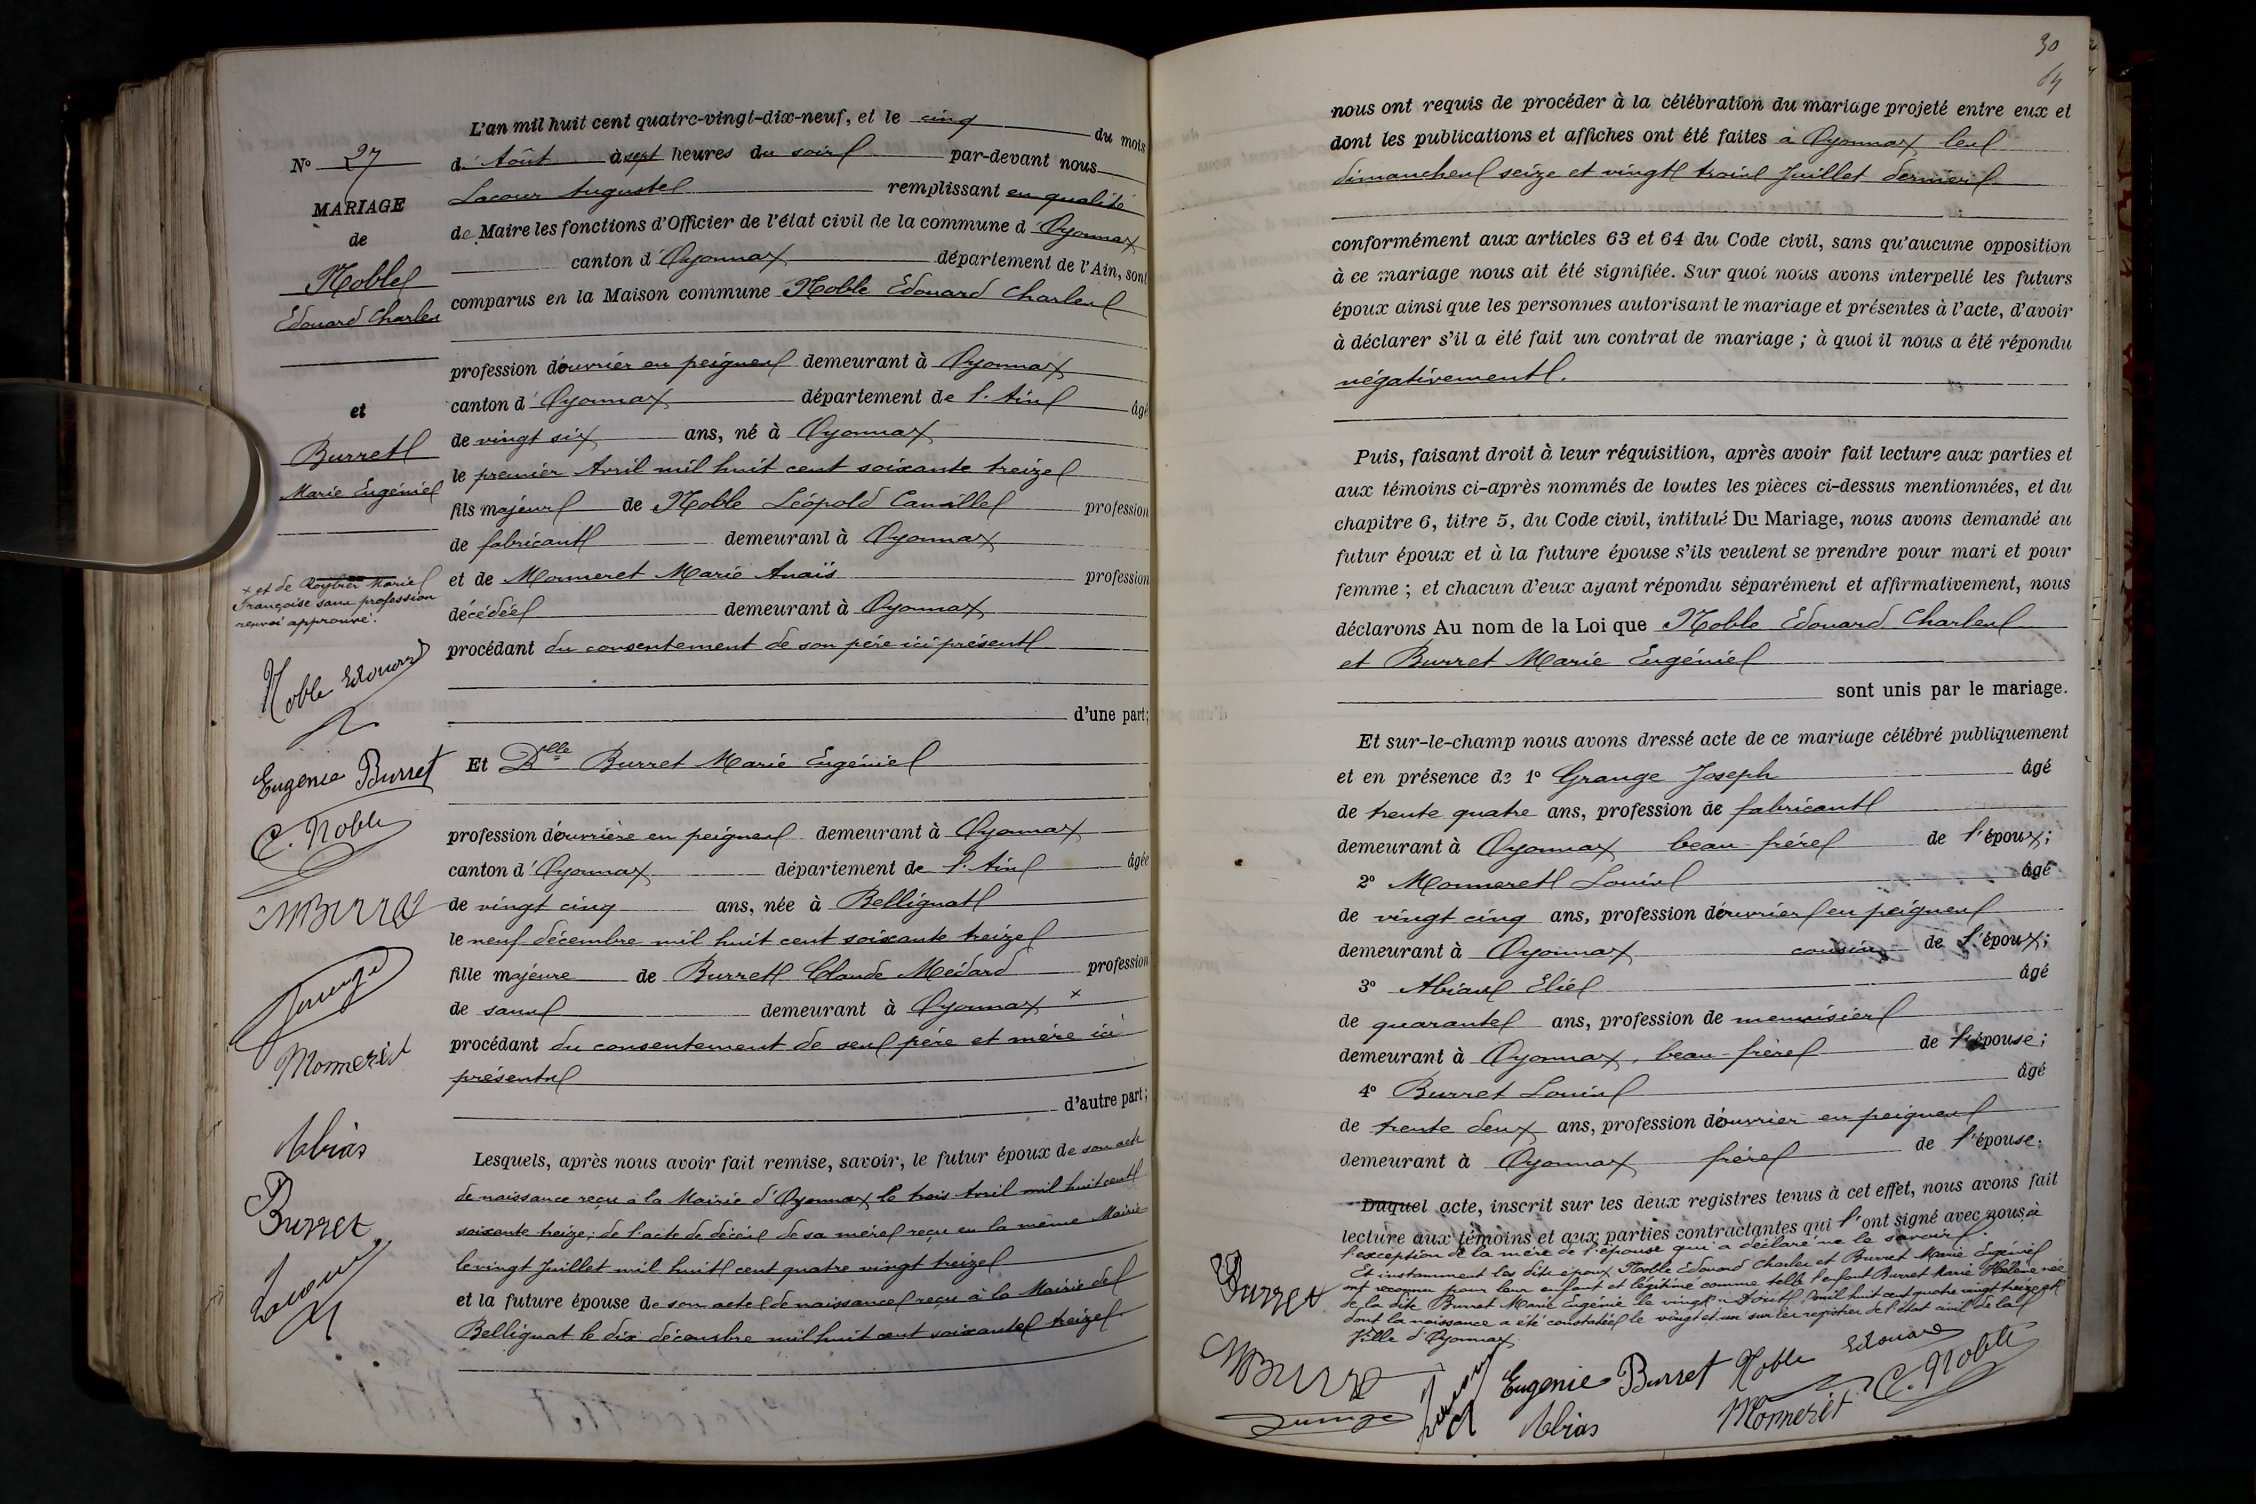 N° 27
MARIAGE
de
Noble
Edouard Charles
et
Burret
Marie Eugénie
x et de Marie
Françoise sans profession
renvoi approuvé.
Noble Edouard
Eugenie Burret
C. Noble
Monneret
Abias
Burret
Lacour
L'an mil huit cent quatre-vingt-dix-neuf, et le cinq du mois
d'Août à sept heures du soir par-devant nous
Lacour Auguste remplissant en qualité
de Maire les fonctions d'Officier de l'état civil de la commune d'Oyonnax
canton d'Oyonnax département de l'Ain, sont
comparus en la Maison commune Noble Edouard Charles
profession d'ouvrier en peignes demeurant à Oyonnax
canton d'Oyonnax département de l'Ain âgé
de vingt six ans, né à Oyonnax
le premier Avril mil huit cent soixante treize
fils majeur de Noble Léopold Camille profession
de fabricant demeurant à Oyonnax
et de Monneret Marie Anaïs profession
décédée demeurant à Oyonnax
procédant du consentement de son père ici présent
d'une part;
Et Dlle Burret Marie Eugénie
profession d'ouvrière en peignes demeurant à Oyonnax
canton d'Oyonnax département de l'Ain âgée
de vingt cinq ans, née à Bellignat
le neuf décembre mil huit cent soixante treize
fille majeure de Burret Claude Médard profession
de sans demeurant à Oyonnax x
procédant du consentement de ses père et mère ici
présents
d'autre part;
Lesquels, après nous avoir fait remise, savoir, le futur époux de son acte
de naissance reçu à la Mairie d'Oyonnax le trois Avril mil huit cent
soixante treize; de l'acte de décès de sa mère reçu en la même Mairie
le vingt Juillet mil huit cent quatre vingt treize
et la future épouse de son acte de naissance reçu à la Mairie de
Bellignat le dix décembre mil huit cent soixante treize
30
64
nous ont requis de procéder à la célébration du mariage projeté entre eux et
dont les publications et affiches ont été faites à Oyonnax les
dimanches seize et vingt trois Juillet dernier
conformément aux articles 63 et 64 du Code civil, sans qu'aucune opposition
à ce mariage nous ait été signifiée. Sur quoi nous avons interpellé les futurs
époux ainsi que les personnes autorisant le mariage et présentes à l'acte, d'avoir
à déclarer s'il a été fait un contrat de mariage; à quoi il nous a été répondu
négativement.
Puis, faisant droit à leur réquisition, après avoir fait lecture aux parties et
aux témoins ci-après nommés de toutes les pièces ci-dessus mentionnées, et du
chapitre 6, titre 5, du Code civil, intitulé Du Mariage, nous avons demandé au
futur époux et à la future épouse s'ils veulent se prendre pour mari et pour
femme; et chacun d'eux ayant répondu séparément et affirmativement, nous
déclarons Au nom de la Loi que Noble Edouard Charles
et Burret Marie Eugénie
sont unis par le mariage.
Et sur-le-champ nous avons dressé acte de ce mariage célébré publiquement
et en présence de 1° Grange Joseph âgé
de trente quatre ans, profession de fabricant
demeurant à Oyonnax beau-frère de l'époux;
2° Monneret Louis âgé
de vingt cinq ans, profession d'ouvrier en peignes
demeurant à Oyonnax cousin de l'époux;
3° Abias Elie âgé
de quarante ans, profession de menuisier
demeurant à Oyonnax, beau-frère de l'épouse;
4° Burret Louis âgé
de trente deux ans, profession d'ouvrier en peignes
demeurant à Oyonnax frère de l'épouse.
Duquel acte, inscrit sur les deux registres tenus à cet effet, nous avons fait
lecture aux témoins et aux parties contractantes qui l'ont signé avec nous à
l'exception de la mère de l'épouse qui a déclaré ne le savoir.
Et instamment les dits époux Noble Edouard Charles et Burret Marie Eugénie
ont reconnu pour leur enfant et légitimé comme telle l'enfant Burret Marie Hélène née
de la dite Burret Marie Eugénie le vingt Août mil huit cent quatre vingt treize et
dont la naissance a été constatée le vingt et un sur les registres de l'état civil de la
Ville d'Oyonnax
Burret
Eugenie Burret Noble Edouard
Abias Monneret C. Noble